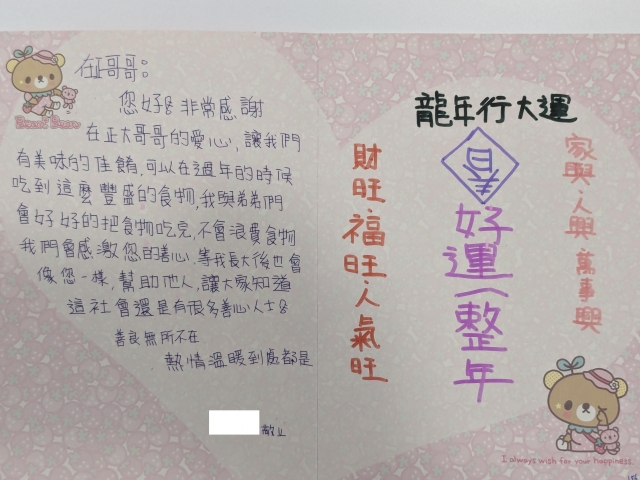 在正哥哥:
您好!非常感謝
在正大哥哥的愛心,讓我們
有美味的佳餚,可以在過年的時候
吃到這麼豐盛的食物,我與弟弟們
會好好的把食物吃完,不會浪費食物
我們會感激您的善心,等我長大後也會
像您一樣,幫助他人,讓大家知道
這社會還是有很多善心人士!
善良無所不在
熱情溫暖到處都是
敬上
龍年行大運
春
好運一整年
財旺.福旺.人氣旺
家興.人興.萬事興
I always wish for your happiness.